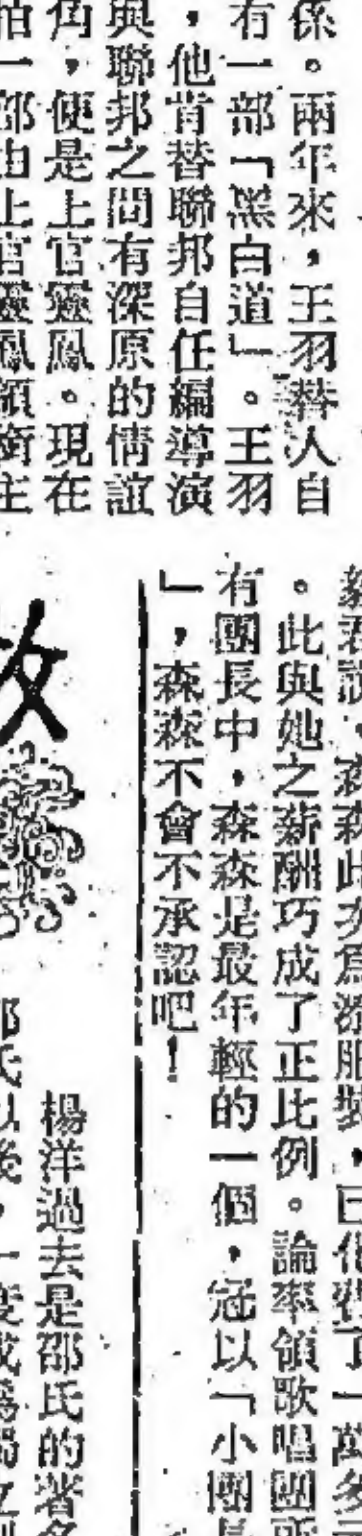 係。兩年來，王羽替人自
有一部「黑白道」。王羽
，他肯替聯邦自任編導演
與聯邦之間有深原的情誼
角，便是上官靈鳳。現在
拍一部由上官靈鳳領銜主
說，森森此次為添服裝，已花費了一萬多
。此與她之薪酬巧成了正比例。論率領歌唱團所
有團長中，森森是最年輕的一個，冠以「小團長
」，森森不會不承認吧！
故
楊洋過去是邵氏的著名
邵氏以後，一度成為獨立